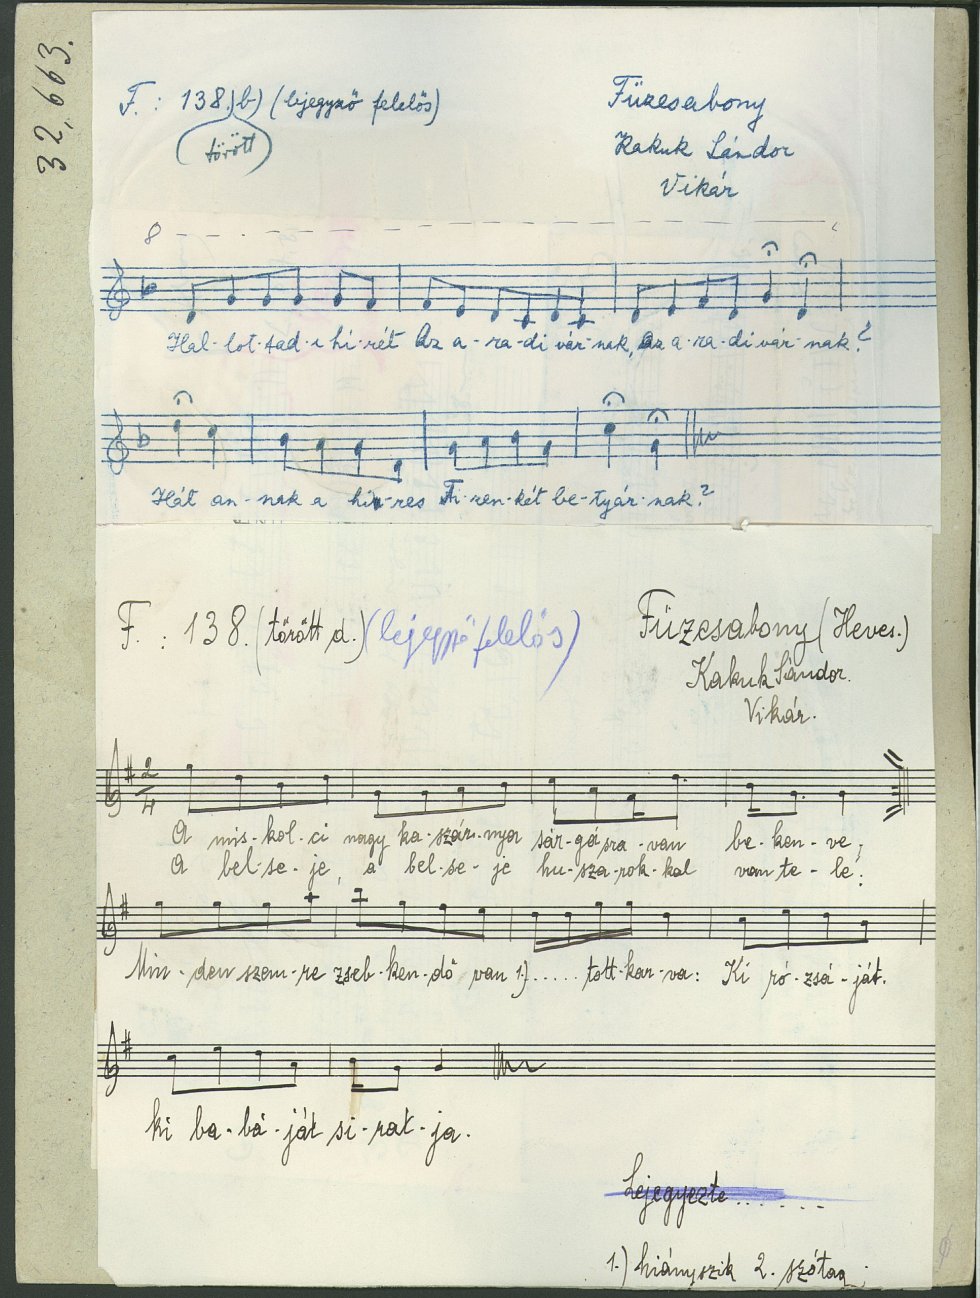 32,663.
F. : 138. b) (lejegyző felelős)
(törött)
Füzesabony
Kakuk Sándor
Vikár
8
Hal-lot-tad-i hi-rét Az a-ra-di vár-nak, az a-ra-di vár-nak?
Hát an-nak a hi-res Fi-ren-két be-tyár-nak?
F. : 138. (törött d.) (lejegyző felelős)
Füzesabony (Heves.)
Kakuk Sándor.
Vikár.
2/4
A mis-kol-ci nagy ka-szár-nya sár-gá sra-van be-ken-ve,
A bel-se-je, a bel-se-je hu-sza-rok-kal van te-le:
Min-den szem-re zseb-ken-dő van 1.)..... tott-kar-va: Ki ró-zsá-ját.
ki ba-bá-ját si-rat-ja.
Lejegyezte......
1.) hiányszik 2. szótag;